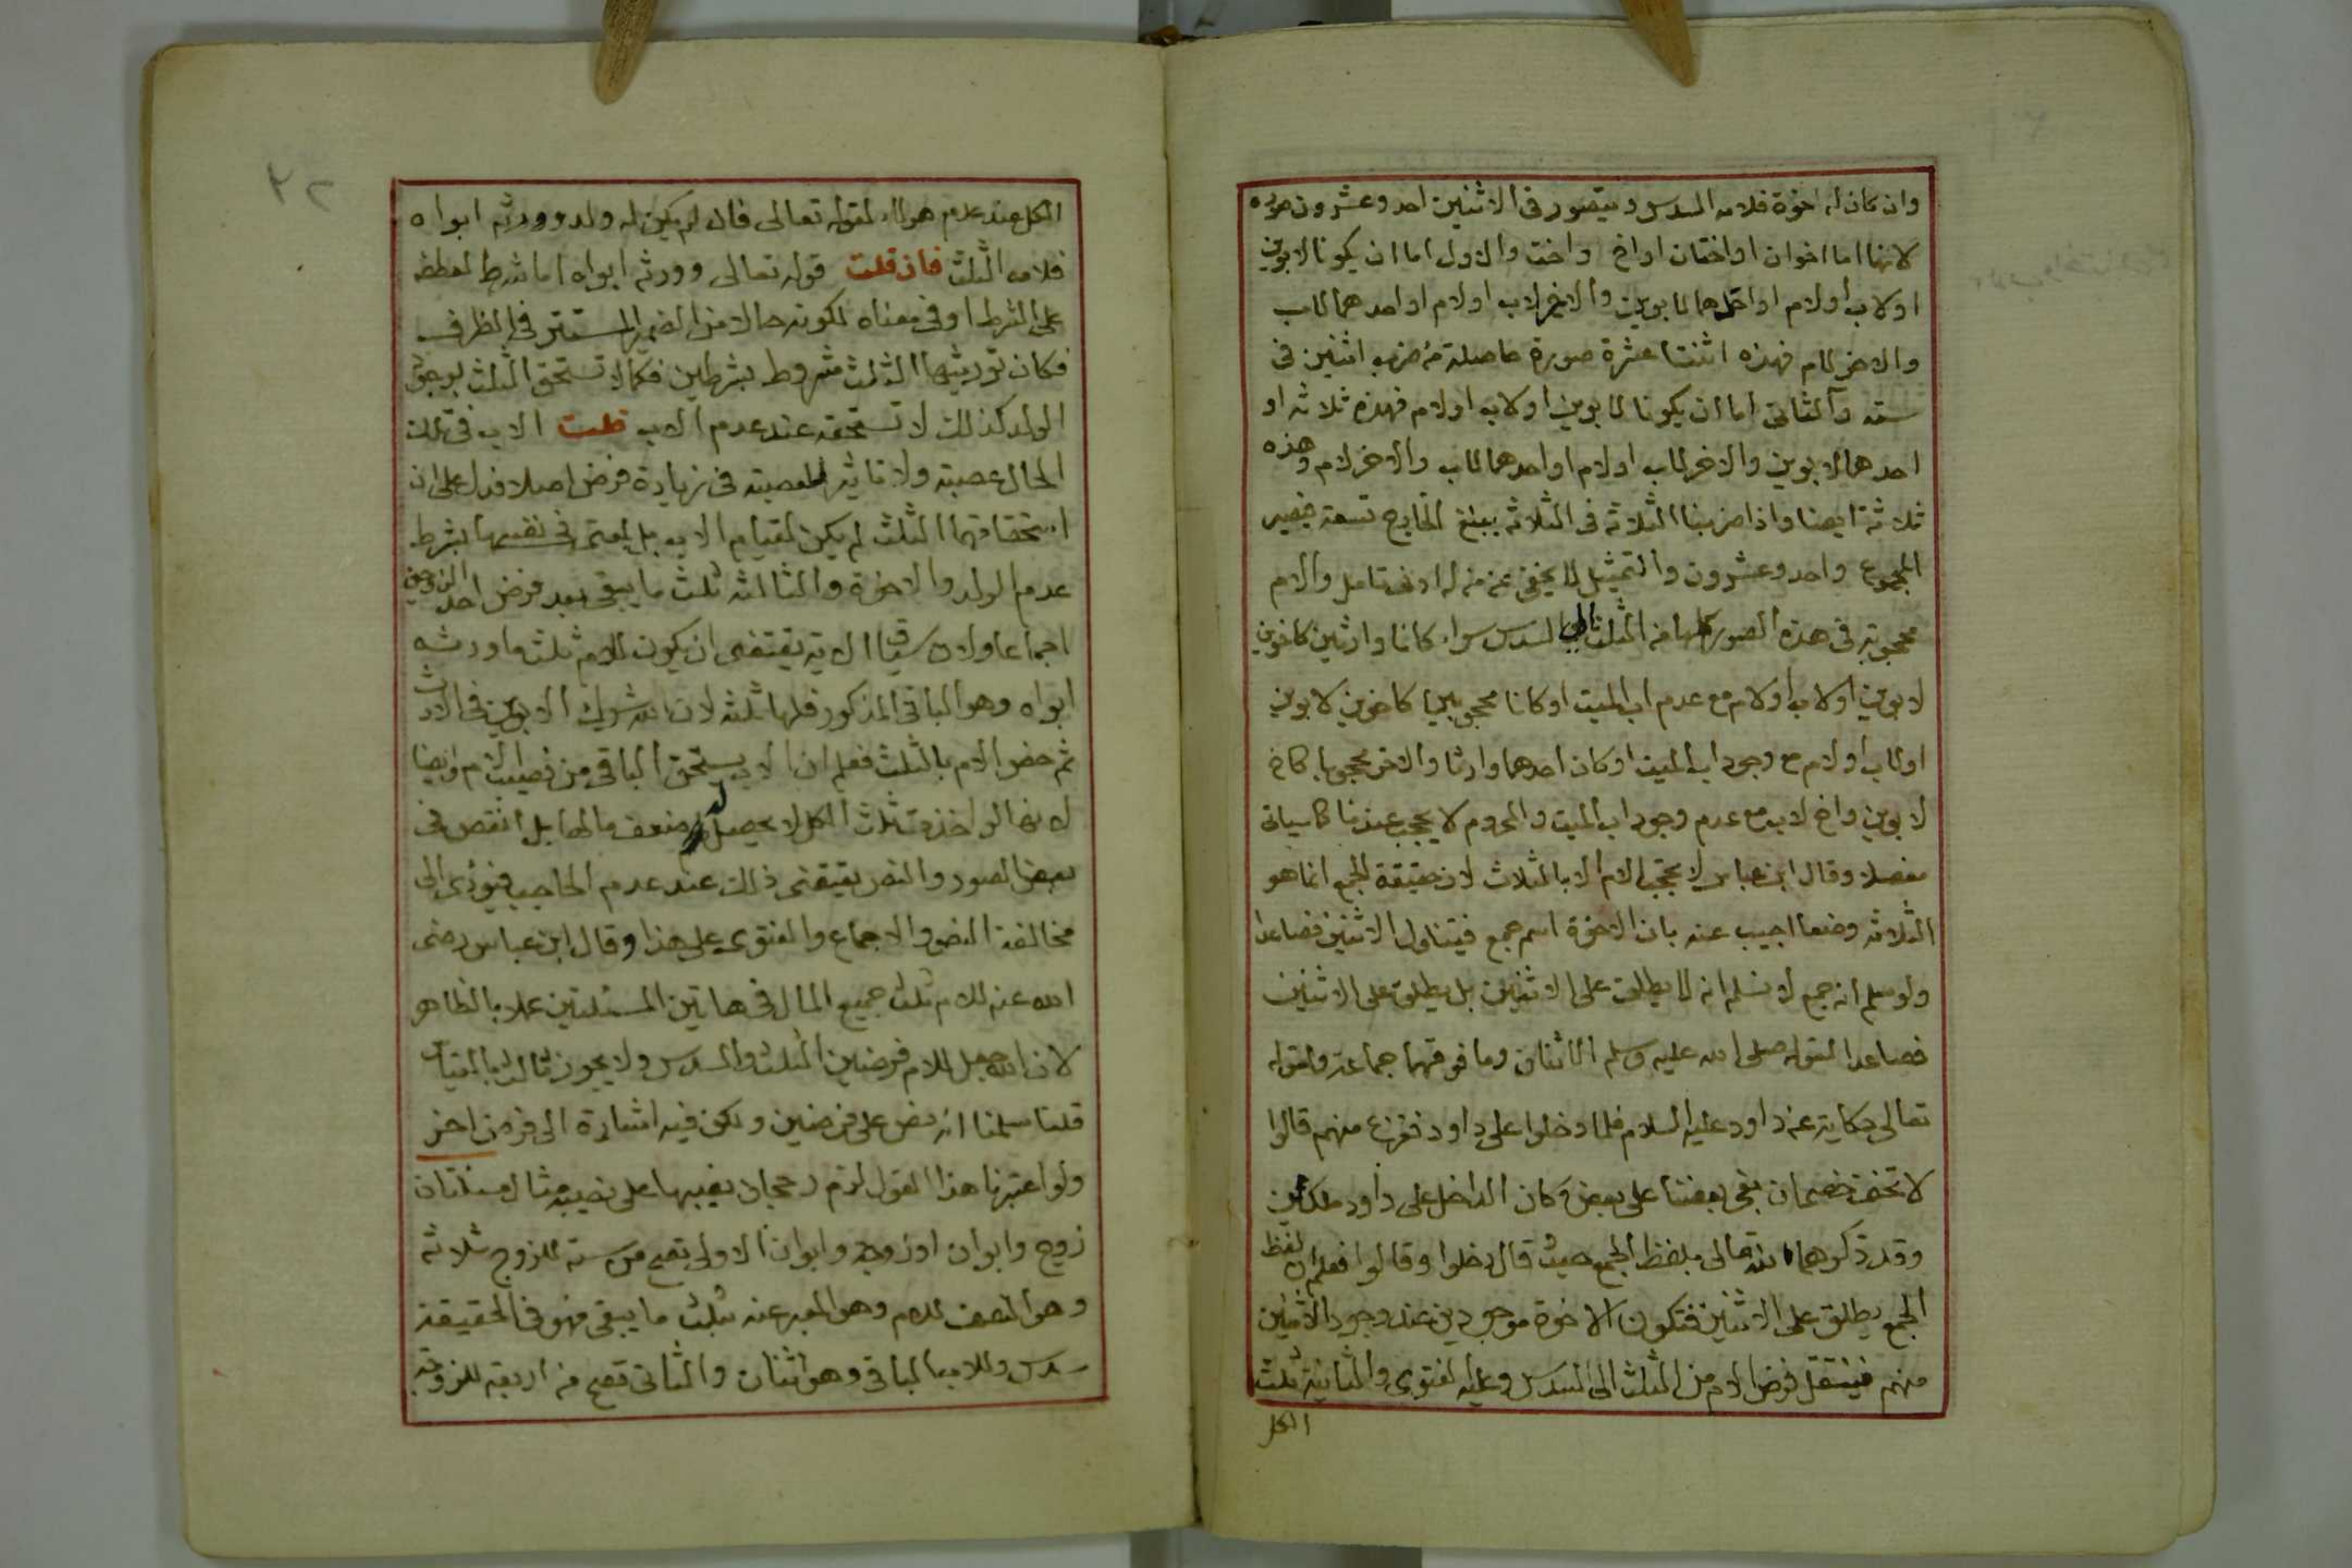 وان كان له اخوة فلامه السدس ويتصور فى الاثنين احد وعشرون صورة
لانهما اما اخوان او اختان او اخ واخت والاول اما ان يكونا لابوين
او لاب او لام او احدهما لابوين والاخر لاب او لام او احدهما للاب
والاخر للام فهذه اثنتا عشرة صورة حاصلة من ضرب اثنين فى
سته والثانى اما ان يكونا لابوين او لاب او لام فهذه ثلاثه او
احدهما لابوين والاخر لاب او لام او احدهما للاب والاخر لام وهذه
ثلاثة ايضا واذا ضربنا الثلاثه فى الثلاثه يبلغ الخارج تسعة فيصير
المجموع واحد وعشرون والتمثيل لا يخفى عن من له ادنى تامل والام
محجوبة فى هذه الصور كلها من الثلث الى السدس سواء كانا وارثين كاخوين
لابوين او لاب او لام مع عدم اب الميت او كانا محجوبين كاخوين لابوين
او لاب او لام مع وجود اب الميت او كان احدهما وارثا والاخر محجوبا كاخ
لابوين واخ لاب مع عدم وجود اب الميت والمحروم لا يحجب عندنا كما سياتى
مفصلا وقال ابن عباس لا تحجب الام الا بالثلاث لان حقيقة الجمع انما هو
الثلاثه وضعا اجيب عنه بان الاخوة اسم جمع فيتناول الاثنين فصاعدا
ولو سلم انه جمع لا نسلم انه لا يطلق على الاثنين بل يطلق على الاثنين
فصاعدا لقوله صلى الله عليه وسلم الاثنان وما فوقهما جماعة ولقوله
تعالى حكاية عن داود عليه السلام فلما دخلوا على داود ففزع منهم قالوا
لا تخف خصمان بغى بعضنا على بعض وكان الداخل على داود ملكين
وقد ذكرهما الله تعالى بلفظ الجمع حيث قال دخلوا وقالوا فعلم ان لفظ
الجمع يطلق على الاثنين فتكون الاخوة موجودين عند وجود الاثنين
منهم فينتقل فرض الام من الثلث الى السدس وعليه الفتوى والثانية ثلث
الكل
٢٢
الكل عند عدم هولاء لقوله تعالى فان لم يكن له ولد وورثه ابواه
فلامه الثلث فان قلت قوله تعالى وورثه ابواه اما شرط لعطفه
على الشرط او فى معناه لكونه حالا من الضمير المستتر فى الظرف
فكان توريثها الثلث مشروط بشرطين فكما لا تستحق الثلث بوجود
الولد كذلك لا تستحقه عند عدم الاب قلت الاب فى تلك
الحال عصبة ولا تاثير للعصبة فى زيادة فرض اصلا فدل على ان
استحقاقهما الثلث لم يكن لقيام الاب بل لمعنى فى نفسها بشرط
عدم الولد والاخوة والثالثه ثلث ما يبقى بعد فرض احد الزوجين
اجماعا ولان سياق الاية يقتضى ان يكون للام ثلث ما ورثه
ابواه وهو الباقى المذكور فلها ثلثه لان الله شرك الابوين فى الارث
ثم خص الام بالثلث فعلم ان الاب يستحق الباقى من نصيب الام وايضا
لانها لو اخذت ثلث الكل لا يحصل له ضعف مالها بل انقص فى
بعض الصور والنص يقتضى ذلك عند عدم الحاجب فيؤدى الى
مخالفة النص والاجماع والفتوى على هذا وقال ابن عباس رضى
الله عنه للام ثلث جميع المال فى هاتين المسئلتين عملا بالظاهر
لان الله جعل للام فرضين الثلث والسدس ولا يجوز ثالث بالقياس
قلنا سلمنا انه نص على فرضين ولكن فيه اشارة الى فرض اخر
ولو اعتبرنا هذا القول لزم رجحان نصيبها على نصيبه مثال مسئلتان
زوج وابوان او زوجة وابوان الاولى تصح من سته للزوج ثلاثه
وهو النصف للام وهو المعبر عنه بثلث ما يبقى فهو فى الحقيقة
سدس وللاب الباقى وهو اثنان والثانى تصح من اربعة للزوجة